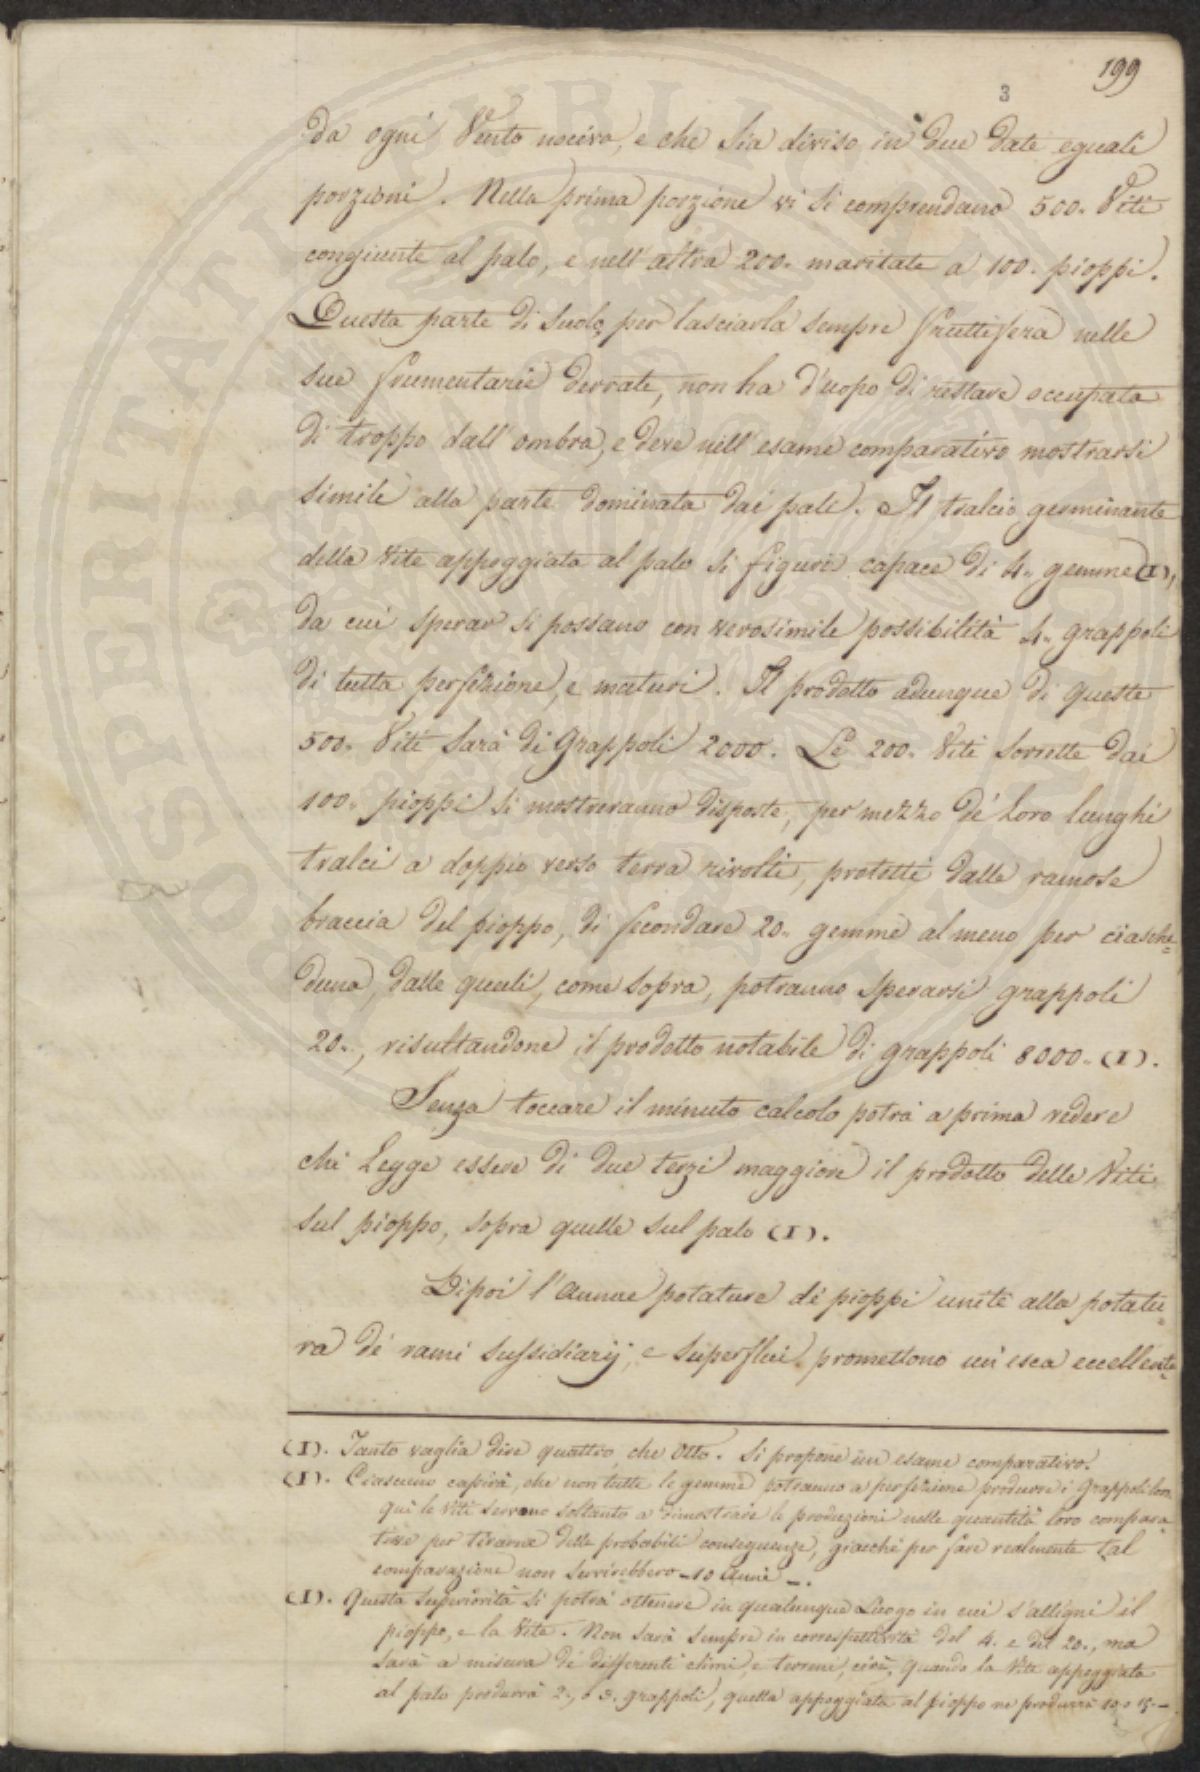 199
3
da ogni Vento nocivo, e che sia diviso in due date eguali
porzioni. Nella prima porzione vi si comprendano 500. Viti
congiunte al palo, e nell'altra 200. maritate a 100. pioppi.
Questa parte di suolo, per lasciarla sempre fruttifera nelle
sue frumentarie derrate, non ha d'uopo di restare occupata
di troppo dall'ombra, e deve nell'esame comparativo mostrarsi
simile alla parte dominata dai pali. Il tralcio germinante
della Vite appoggiata al palo si figuri capace di 4. gemme (I),
da cui sperar si possano con verosimile possibilità 4. grappoli
di tutta perfezione, e maturi. Il prodotto adunque di queste
500. Viti sarà di Grappoli 2000. Le 200. Viti sorrette dai
100. pioppi si mostreranno disposte, per mezzo de' loro lunghi
tralci a doppio verso terra rivolti, protetti dalle ramose
braccia del pioppo, di fecondare 20. gemme al meno per ciasche=
duna, dalle quali, come sopra, potranno sperarsi grappoli
20., risultandone il prodotto notabile di grappoli 8000. (I).
Senza toccare il minuto calcolo potrà a prima vedere
chi Legge essere di due terzi maggiore il prodotto delle Viti
sul pioppo, sopra quelle sul palo (I).
Dipoi l'annue potature de' pioppi unite alla potatu=
ra de' rami sussidiarij, e superflui promettono un'esca eccellente
(I). Tanto vaglia dire quattro, che Otto. Si propone un esame comparativo.
(I). Ciascuno capirà, che non tutte le gemme potranno a perfezione produrre i Grappoli loro,
qui le Viti servono soltanto a dimostrare le produzioni nelle quantità loro compara=
tive per tirarne delle probabili conseguenze, giacché per fare realmente tal
comparazione non servirebbero 10 anni.
(I). Questa superiorità si potrà ottenere in qualunque Luogo in cui s'alligni il
pioppo, e la Vite. Non sarà sempre in correspettività del 4. e del 20., ma
sarà a misura de' differenti climi, e terreni, cioè, quando la Vite appoggiata
al palo produrrà 2., o 3. grappoli, quella appoggiata al pioppo ne produrrà 10. o 15.